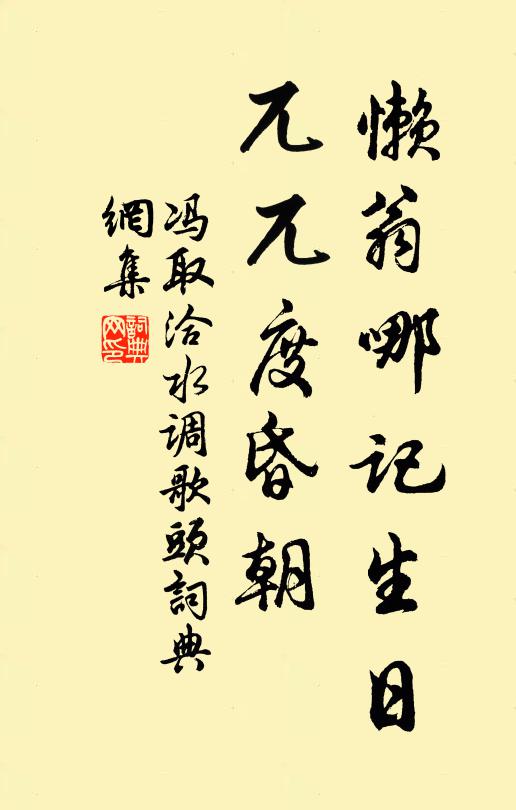 懒翁哪记生日
兀兀度昏朝
冯取洽水调歌頭詞典
網集
詞典
网印